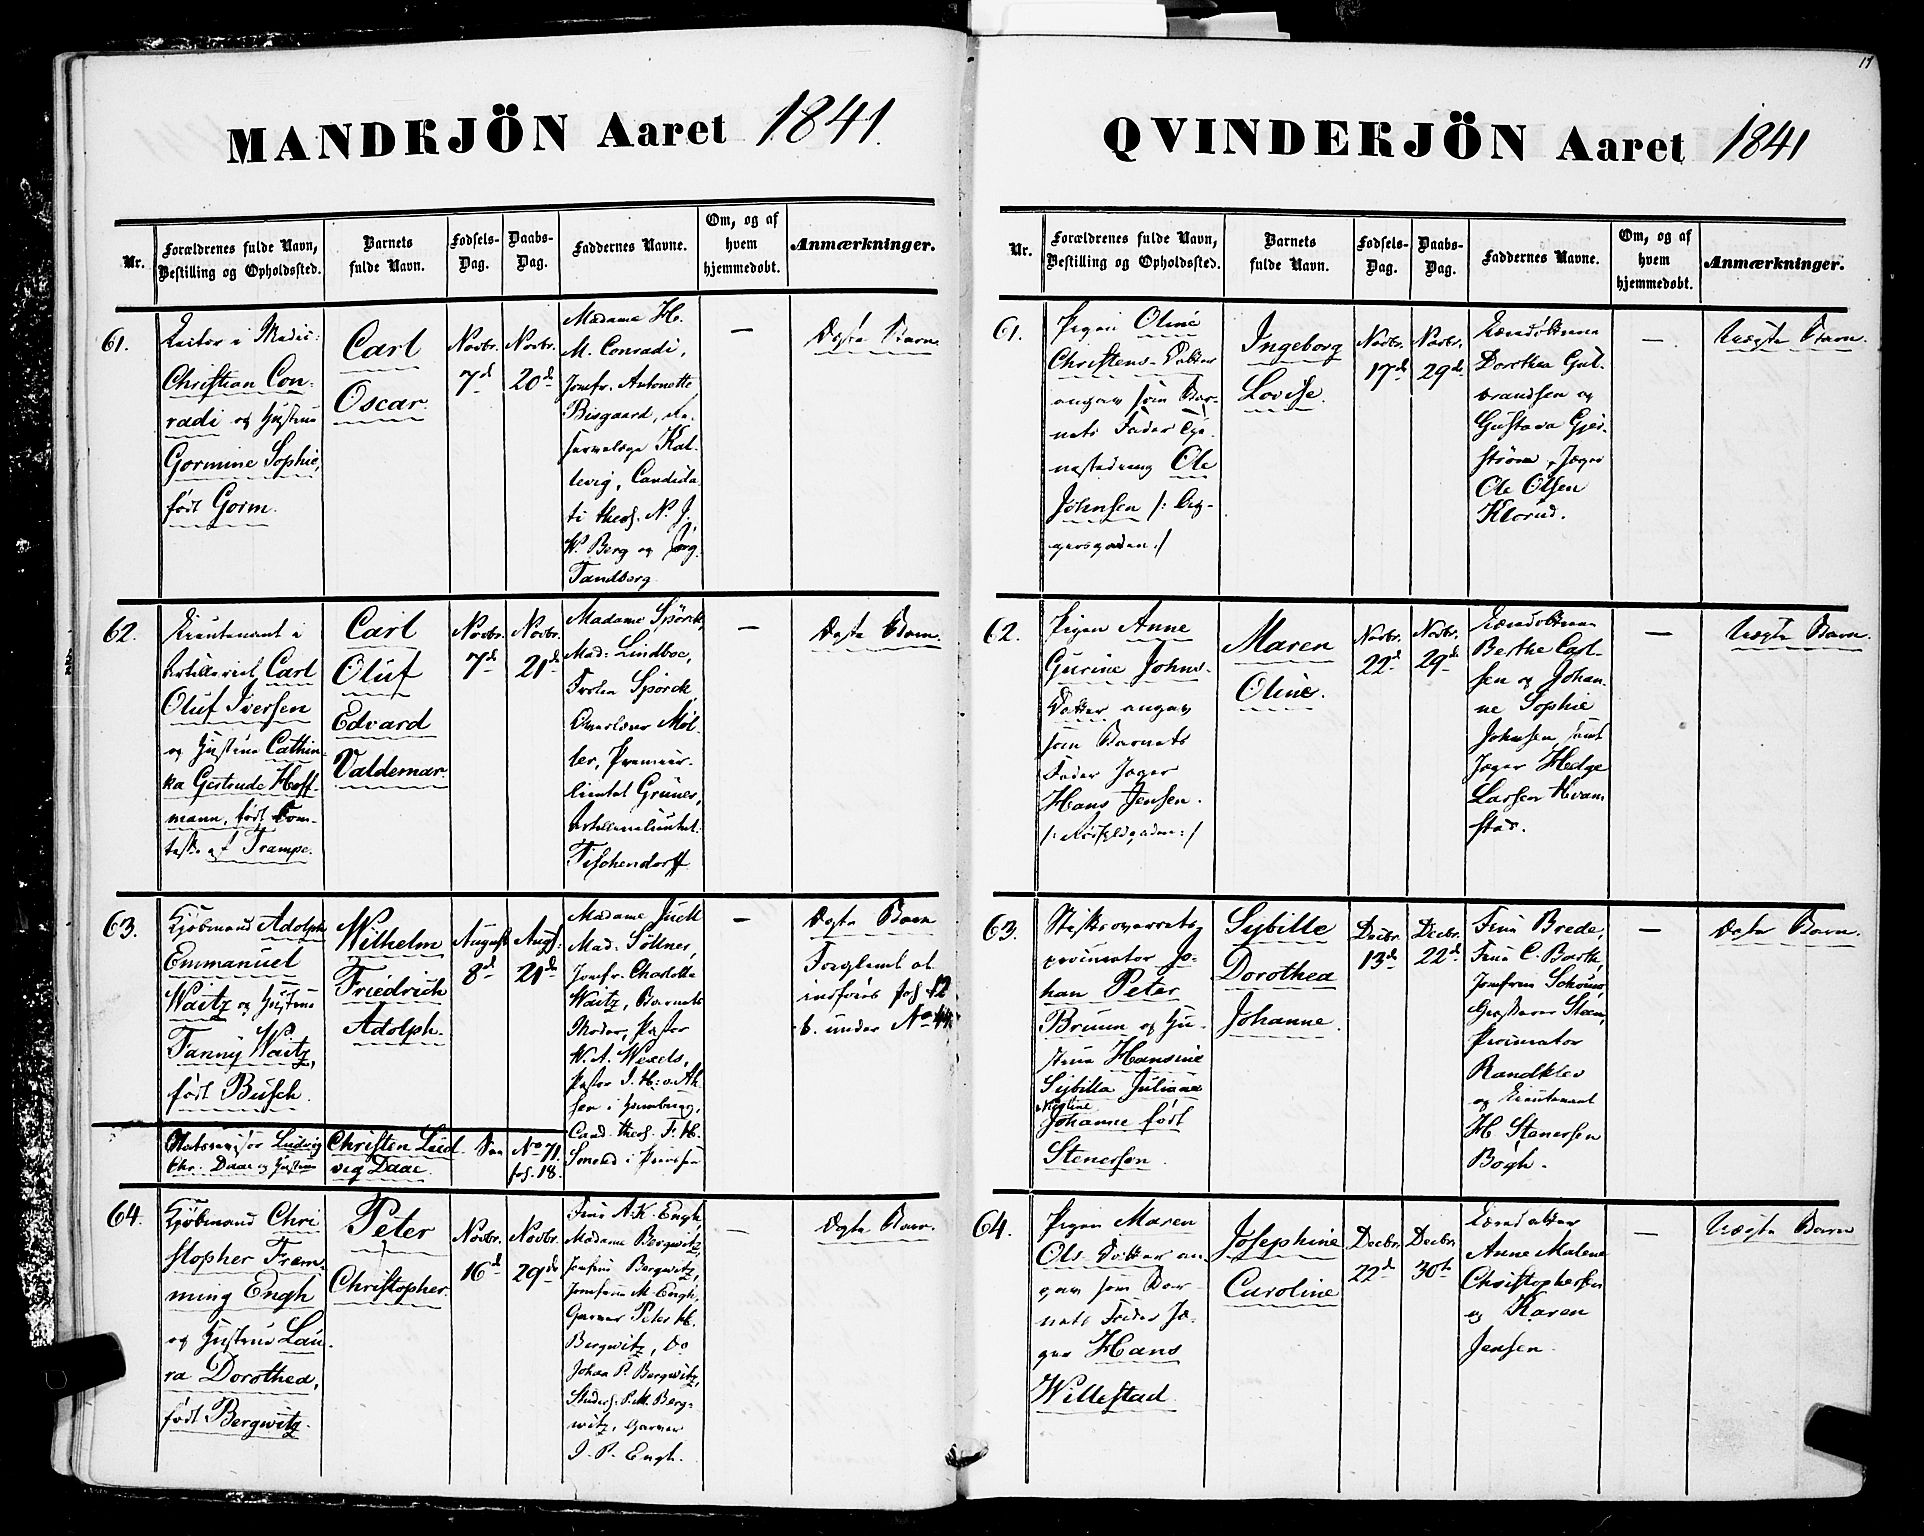 17
MANDKJÖN Aaret 1841.
Nr.
Forældrenes fulde Navn,
Bestilling og Opholdssted.
Barnets
fulde Navn.
Fødsels-
Dag.
Daabs-
Dag.
Faddernes Navne.
Om, og af
hvem
hjemmedøbt.
Anmærkninger.
61.
Lector i Medic:
Christian Con-
radi og Hustrue
Gormine Sophie,
født Gorm.
Carl
Oscar.
Novbr.
7d
Novbr.
20de
Madame H.
M. Conradi,
Jomfr. Antonette
Bisgaard,
Kal-
levig, Candida-
ti theol. N. J.
W. Berg og Jørg.
Tandberg.
—
Ægte Barn
62.
Lieutenant i
Artilleriet Carl
Oluf Iversen
og Hustrue Cathin-
ka Gertrude Hoff-
mann, født Com-
tesse af Trampe.
Carl
Oluf
Edvard
Valdemar.
Novbr.
7d
Novbr.
21de
Madame Spørck,
Mad: Lindboe,
Frøken Spørck,
Overlærer Møl-
ler, Premier-
lieutnt Grüner,
Artillerielieutnt.
Tischendorff
—
Ægte Barn.
63.
Kjøbmand Adolph
Emmanuel
Waitz og Hustrue
Fanny Waitz,
født Busch.
Wilhelm
Friedrich
Adolph.
August
8d
Augs.
21de
Madame Juell
Mad. Söllner,
Jomfr. Charlotte
Waitz, Barnets
Moder, Pastor
W. A. Wexels,
Pastor J. H. v. Ah-
sen i Hamburg,
Cand. theol. F. H.
i Preussen
—
Ægte Barn
Forglemt at
indføres fol 12
b. under No 44.
Ludvig
Chr. Daae og Hustrue
Christen Lud-
vig Daae.
See
No 71.
fol. 18.
64.
Kjøbmand Chri-
stopher Frem-
ming Engh
og Hustrue Lau-
ra Dorothea,
født Bergwitz.
Peter
Christopher.
Novbr.
16d
Novbr.
29de
Frue A. K. Engh,
Madame Bergwitz,
Jomfrue Bergwitz,
Jomfrue M. Engh,
Garver Peter H.
Bergwitz, Do
Johan P. Bergwitz,
Studios. P. M. Berg-
witz, Garver
J. P. Engh.
—
Ægte Barn.
QVINDEKJÖN Aaret 1841
Nr.
Forældrenes fulde Navn,
Bestilling og Opholdssted.
Barnets
fulde Navn.
Fødsels-
Dag.
Daabs-
Dag.
Faddernes Navne.
Om, og af
hvem
hjemmedøbt.
Anmærkninger.
61.
Pigen Oline
Christens-Datter
angav som Bar-
nets Fader Tje-
nestedreng Ole
Johnsen /: Ag-
gersgaden :/
Ingeborg
Lovise.
Novbr.
17de
Novbr.
29de
Dorthea Gul-
brandsen og
Gustava Gjer-
strøm, Jæger
Ole Olsen
Klorud.
—
Uægte Barn.
62.
Pigen Anne
Gurine Johns-
Datter angav
som Barnets
Fader Jæger
Hans Jensen.
Maren
Oline.
Novbr.
22d
Novbr.
29de
Berthe Carl-
sen og Johan-
ne Sophie
Johnsen samt
Jæger Helge
Larsen Kvam-
stad.
—
Uægte Barn.
63.
Stiftsoverrets-
procurator Jo-
han Peter
Bruun og Hu-
strue Hansine
Sybilla Juliane
Johanne født
Stenersen.
Sybille
Dorothea
Johanne.
Decbr.
13d
Decbr.
22d
Frue Brede,
Frue C. Barth,
Jomfrue
Procurator
Randklev
og Lieutenant
H Stenersen
Bøgh.
—
Ægte Barn.
64.
Pigen Maren
Ols-Datter an-
gav som Bar-
nets Fader Jæ-
ger Hans
Willestad.
Josephine
Caroline
Decbr.
22d
Decbr.
30te
Anne Malene
Christophersen
og Karen
Jensen.
—
Uægte Barn